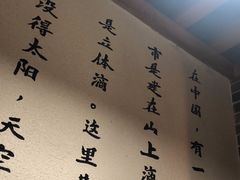 在中国，有一
市是建在山上滴
是立体滴。这里
没得太阳，天空